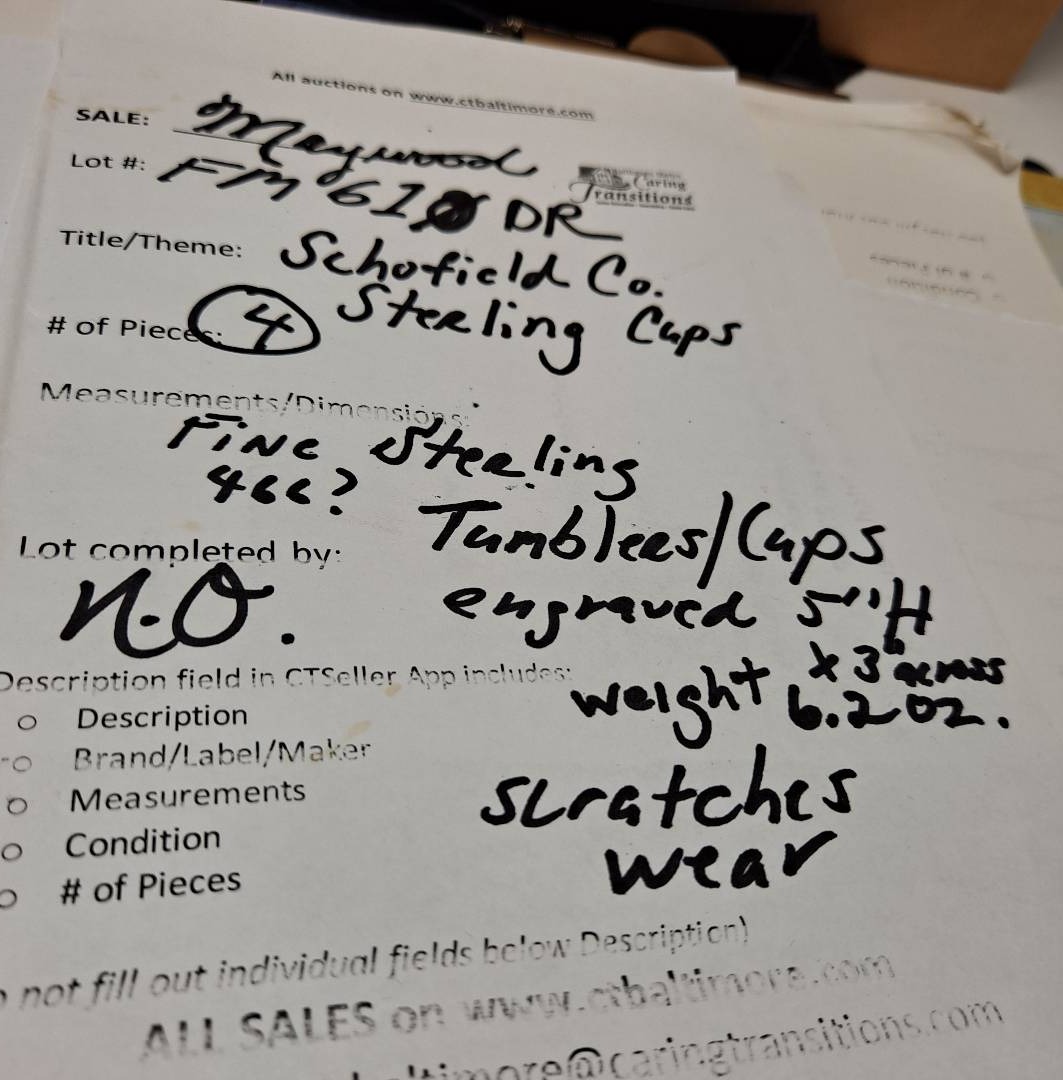 All auctions on www.ctbaltimore.com
SALE: Maywood
Lot #: FM 61 DR
Caring
Transitions
Title/Theme: Schofield Co.
Sterling Cups
# of Pieces: 4
Measurements/Dimensions:
Fine Sterling
466?
Tumblers/Cups
Lot completed by:
N.O.
engraved 5"H
x 3" across
weight 6.2 oz.
Description field in CTSeller App includes:
o Description
o Brand/Label/Maker
o Measurements
o Condition
o # of Pieces
scratches
wear
not fill out individual fields below Description)
ALL SALES on www.ctbaltimore.com
baltimore@caringtransitions.com